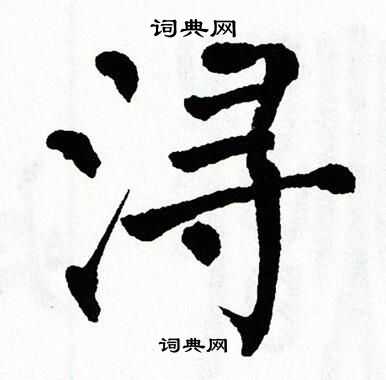 词典网
浔
词典网